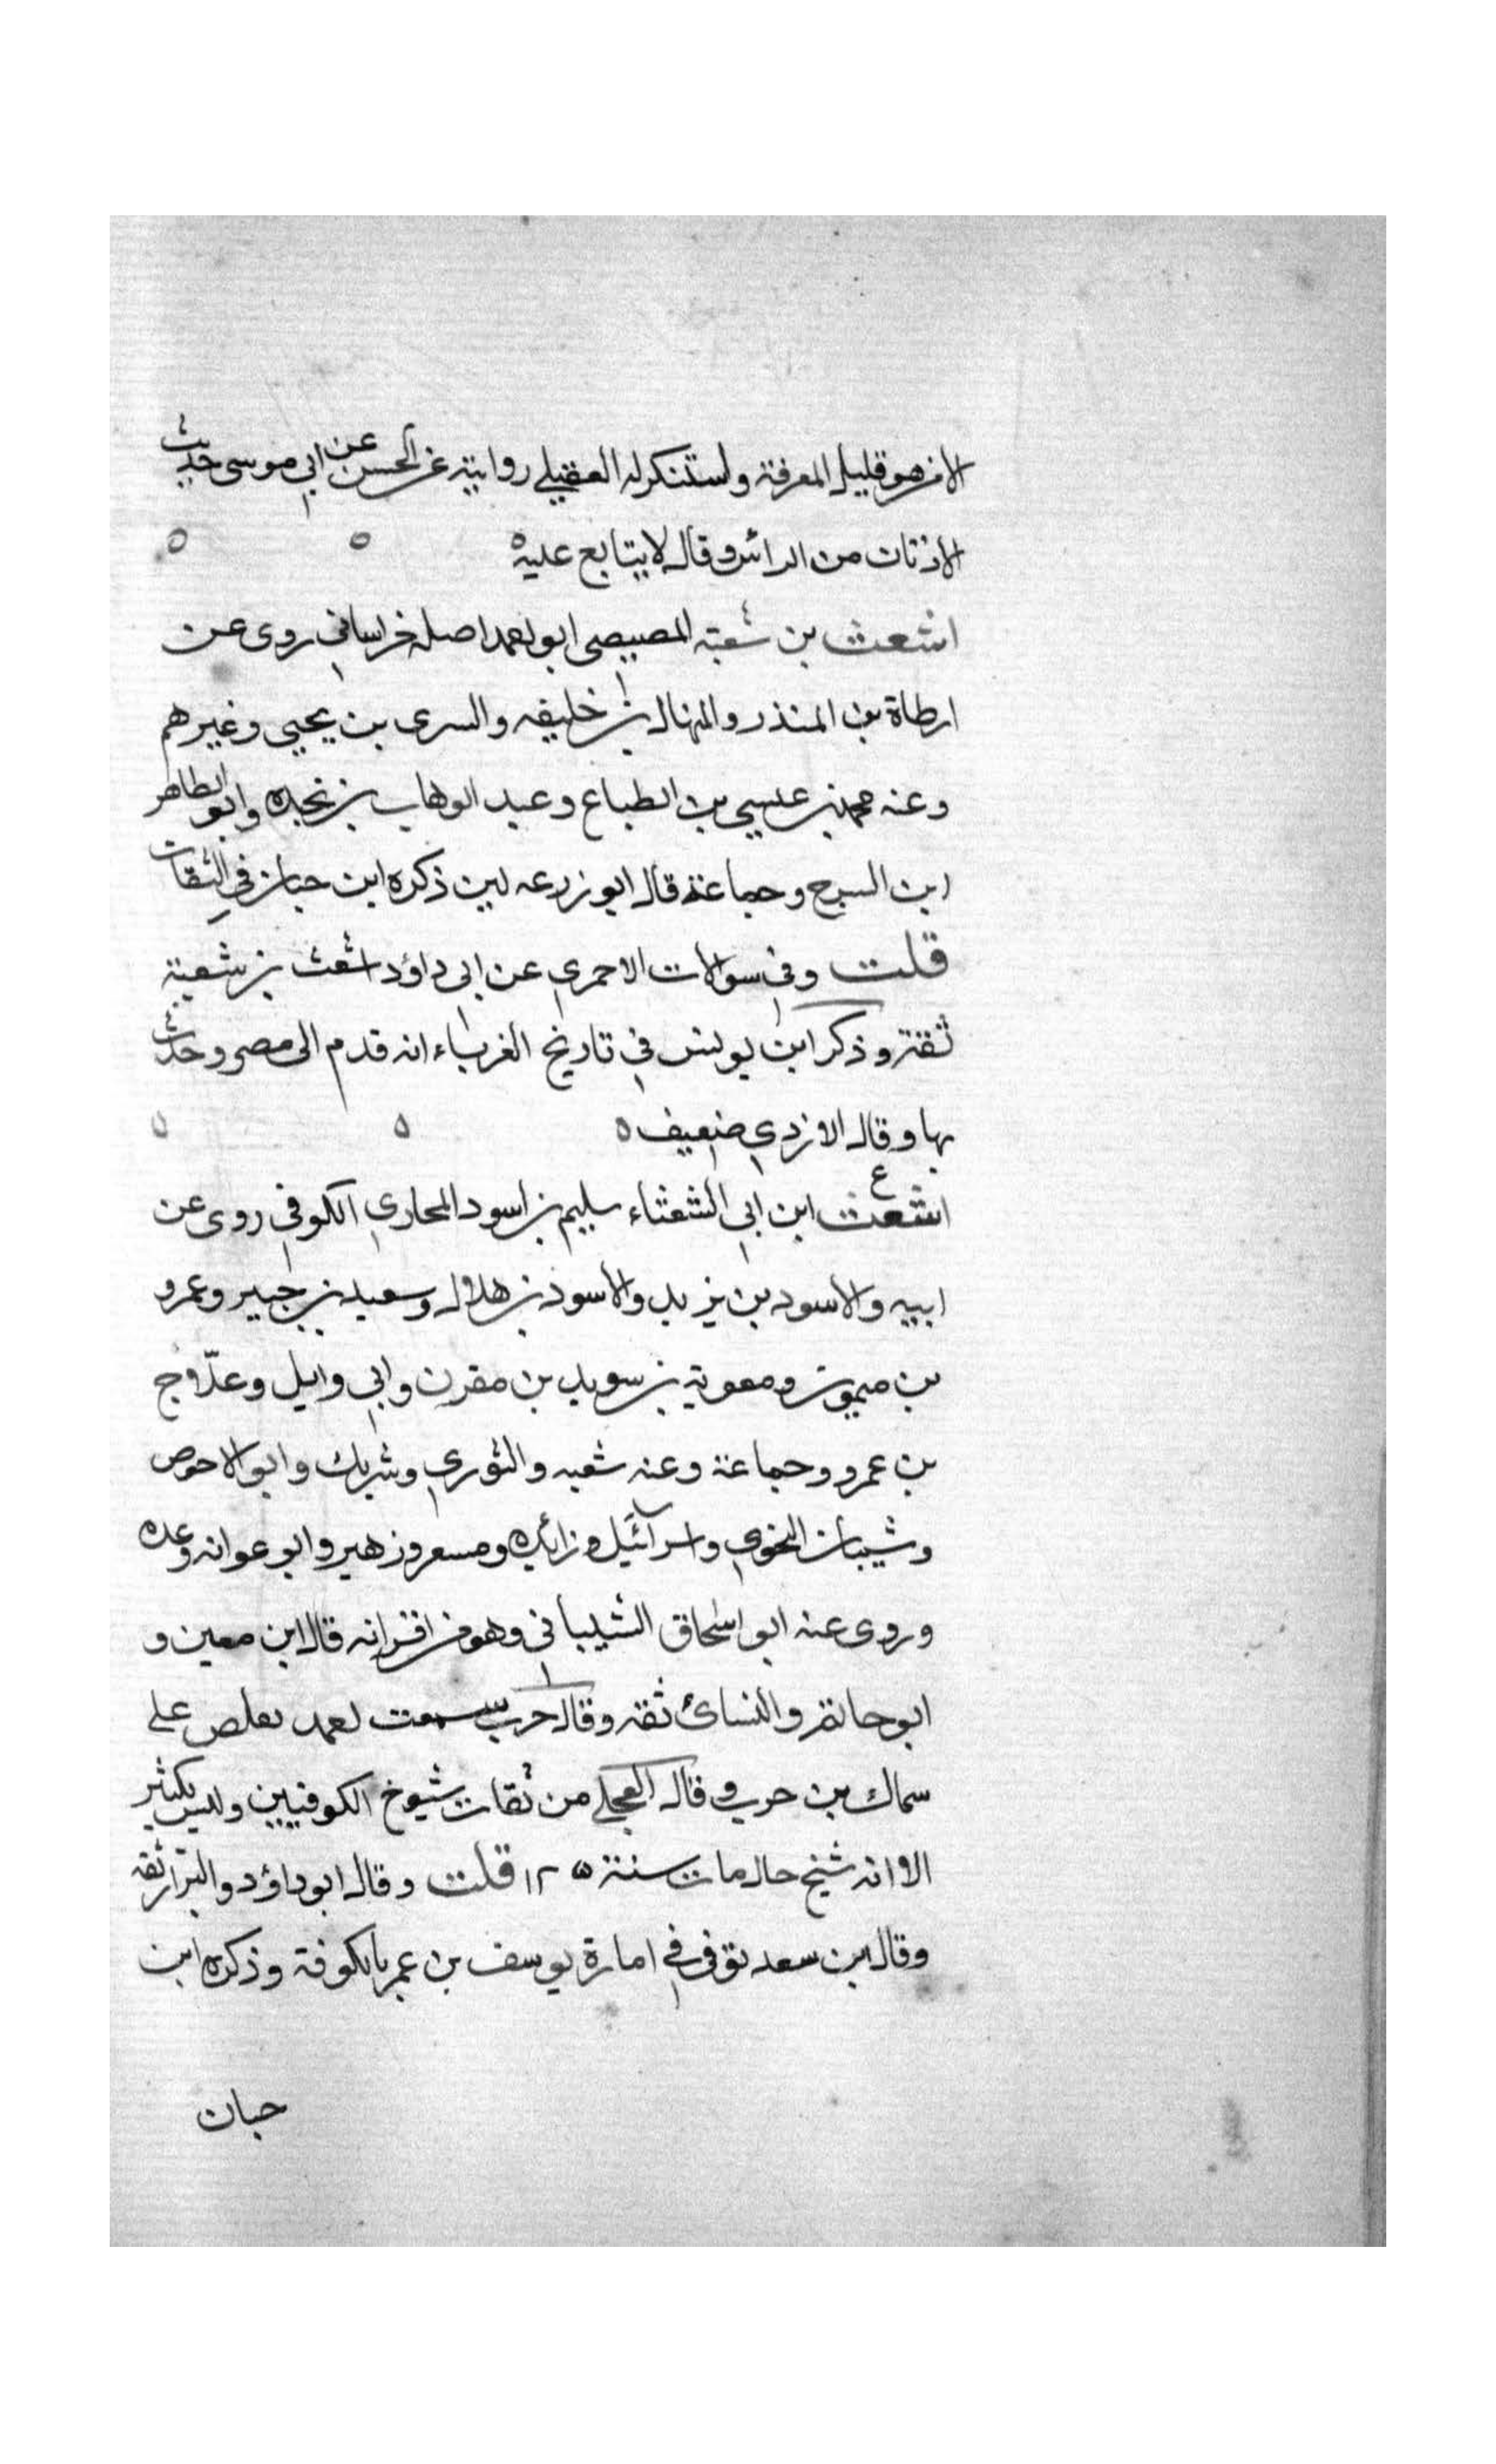 الا من هو قليل المعرفة واستنكر له العقيلي روايته عن الحسن عن ابي موسى حديث
الاذنان من الراس وقال لا يتابع عليه ه
اشعث بن شعبة المصيصي ابو احمد اصله خراساني روى عن
ارطاة بن المنذر والمنهال بن خليفه والسرى بن يحيى وغيرهم
وعنه محمد بن عيسى بن الطباع وعبد الوهاب بن نجده وابو الطاهر
ابن السرح وجماعة قال ابو زرعه لين ذكره ابن حبان في الثقات
قلت وفي سوالات الاجري عن ابي داؤد اشعث بن شعبة
ثقة وذكر ابن يونس في تاريخ الغرباء انه قدم الى مصر وحدث
بها وقال الازدي ضعيف ه
ع
اشعث ابن ابي الشعثاء سليم بن اسود المحاربي الكوفي روى عن
ابيه والاسود بن يزيد والاسود بن هلال وسعيد بن جبير وعمرو
بن ميمون ومعوية بن سويد بن مقرن وابي وايل وعلاج
بن عمرو وجماعة وعنه شعبه والثوري وشريك وابو الاحوص
وشيبان النحوي واسرآئيل وزائده ومسعر وزهير وابو عوانه وعده
وروى عنه ابو اسحاق الشيباني وهو من اقرانه قال ابن معين و
ابو حاتم والنسائ ثقه وقال حرب سمعت احمد على
سماك بن حرب وقال العجلي من ثقات شيوخ الكوفيين وليس بكثير
الا انه شيخ حال مات سنة ١٢٥ قلت وقال ابو داؤد والبزار ثقه
وقال ابن سعد توفي في امارة يوسف بن عمر بالكوفة وذكره ابن
حبان